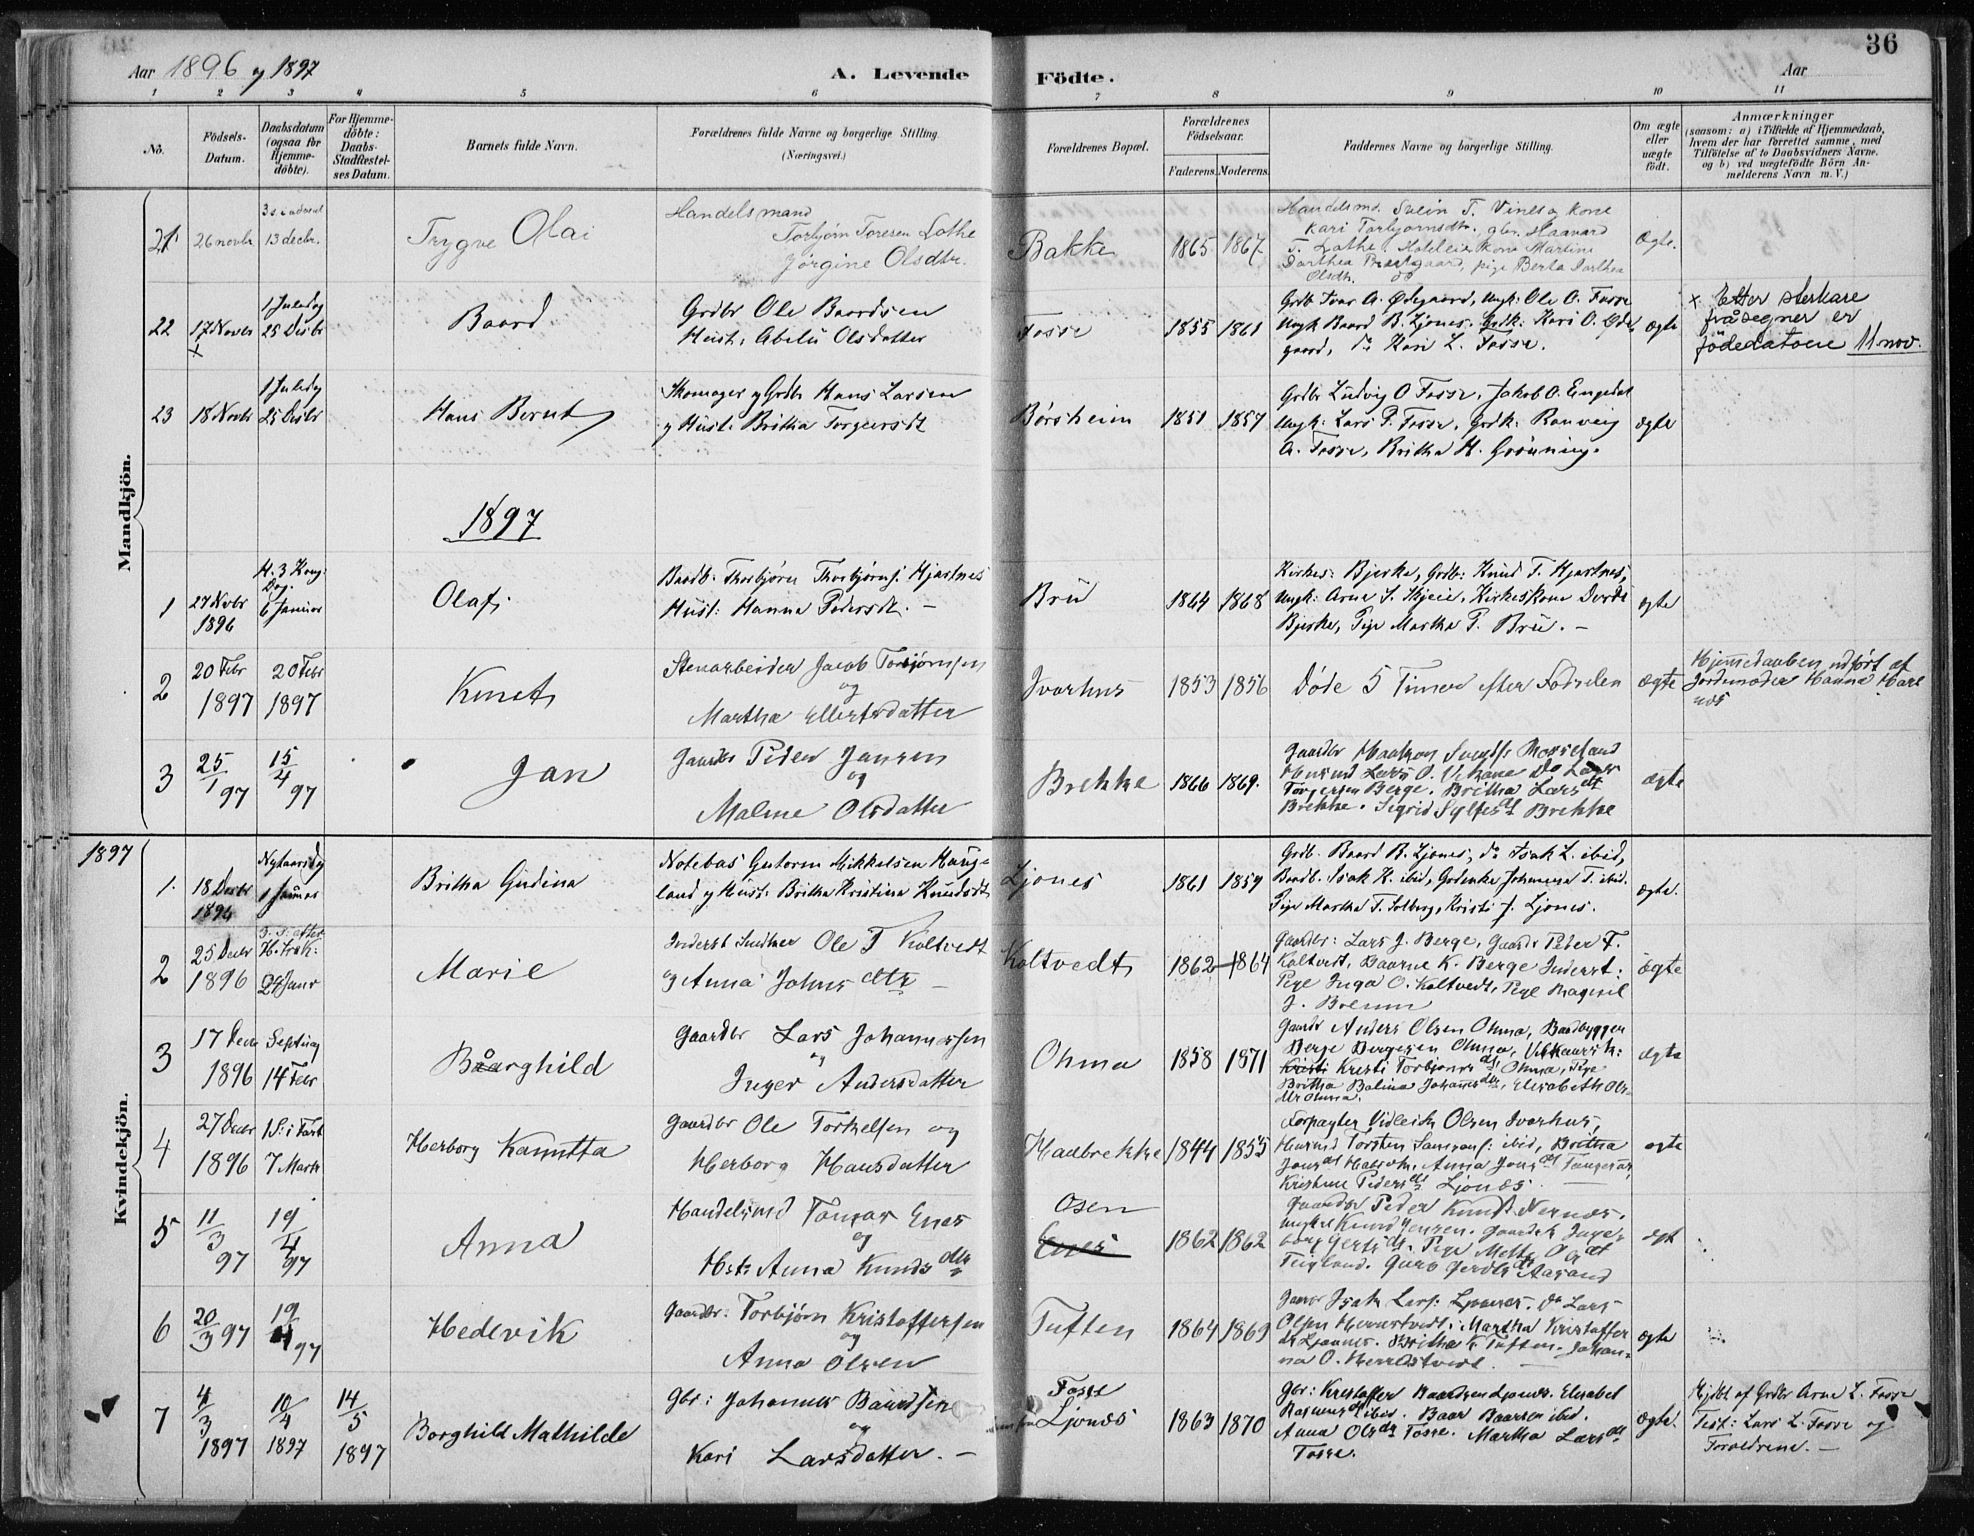 36
Aar 1896 og 1897
A. Levende Födte.
Aar
1 2 3 4 5 6 7 8 9 10 11
No.
Födsels-
Datum.
Daabsdatum
(ogsaa for
Hjemme-
döbte).
For Hjemme-
döbte:
Daabs-
Stadfæstel-
ses Datum.
Barnets fulde Navn.
Forældrenes fulde Navne og borgerlige Stilling.
(Næringsvei.)
Forældrenes Bopæl.
Forældrenes
Födselsaar.
Faderens. Moderens.
Faddernes Navne og borgerlige Stilling.
Om ægte
eller
uægte
födt.
Anmærkninger
(saasom: a) i Tilfælde af Hjemmedaab,
hvem der har forrettet samme, med
Tilföielse af to Daabsvidners Navne,
og b) ved uægtefödte Börn An-
melderens Navn m. V.)
Mandkjön.
21.
26 novbr.
3 s. i advent
13 decbr.
Trygve Olai
Handelsmand
Torbjörn Toresen Lothe
Jörgine Olsdtr.
Bakke
1865
1867.
Handelsmd. Svein T. Vines og kone
Kari Torbjörnsdtr. gbr. Haavard
T. Lothe, kone Martine
Dorthea Præstgaard, pige Berta Dorthea
Olsdtr.
Ægte.
22
17 Novbr
x
1 Juledag
25 Decbr
Baard
Grdbr Ole Baardsen
Hust. Abelü Olsdatter
Fosse
1855
1861
Grdb Ivar A. Ødegaard, Ungk: Ole O. Fosse
Ungk Baard B. Ljones, Grdk: Kari O. Øde-
gaard, do Kari L. Fosse.
ægte
x Etter sterkare
fråsegner er
födedatoen 11 nov.
23
18 Novbr
1 Juledag
25 Decbr
Hans Bernt
Skomager og Grdbr Hans Larsen
og Hust: Britha Torgeirsdt
Börsheim
1851
1857
Grdbr Ludvig O Fosse, Jakob O. Engedal
Ungk: Lars P. Fosse, Grdk: Ranveig
A. Fosse, Britha H. Gröuning.
ægte
1897
1
27 Novbr
1896
H. 3 Kong:
Dag.
6 Januar
Olaf
Baadb: Thorbjörn Thorbjörns: Hjartnes
Hust: Hanna Pedersdt. -
Brü
1864
1868
Kirkes: Bjerke, Grdb: Knud T. Hjartnes,
Ungk: Arne S. Skjeie, Kirkeskone Dordi
Bjerke, Pige Martha P. Brü. -
ægte
2
20 Febr
1897
20 Febr
1897
Knut
Stenarbeider Jacob Torbjörnsen
og
Martha Ellertsdatter
Ivarhus
1853
1856
Döde 5 Timer efter Födselen
ægte
Hjemmedaaben udfört af
Jordemoder Hanna Mæl
næs
3
25/1 97
15/4 97
Jan
Gaardbr Peder Jansen
og
Malene Olsdatter
Brekke
1866
1869.
Gaardbr Haakon Svends: Mosseland
Husmd Lars O. Vikane Do Lars
Torgersen Berge. Britha Larsdt
Brekke. Sigrid Sylfesdt Brekke
ægte
1897
Kvindekjön.
1.
18 Decbr
1896
Nytaarsdag
1 Januar
Britha Gudina
Notebas Gutorm Mikkelsen Haug-
land og Hust: Britha Kristina Knudsdt
Ljones
1861
1859
Grdb. Baard B. Ljones, do Isak L. ibid,
Baadb. Isak K. ibid, Johanna T. ibid.
Pige Martha T. Solberg, Kristi J. Ljones.
ægte.
2
25 Decbr
1896
3. S. efter
H. Tr. K:
24 Janr
Marie
Inderst Ole T Koltvedt
og Anna Johns dtr -
Koltvedt
1862
1864
Gaardbr: Lars J. Berge, Gaardbr Peder T.
Koltvedt, Baarne K. Berge Inderst:
Pige Inga O. Koltvedt, Pige Magnil
J. Broenn
ægte
3
17 Decbr
1896
Septuag
14 Febr
Baarghild
Gaardbr Lars Johannessen
og
Inger Andersdatter
Ohma
1858
1871
Gaardbr Anders Olsen Ohma, Baadbygger
Berge Bergesen Ohma,
Kristi Torbjörns dt Ohma, Pige
Britha Balina Johannes dtr, Elisabeth Ols-
dtr Ohma.
ægte
4
27 Decbr
1896
1 S: i Fast
7 Marts
Herborg Kanutta
Gaardbr Ole Torkelsen og
Herborg Hansdatter
Haabrekke
1844
1855
Forpagter Vidleik Olsen Ivarhus,
Husmd Torsten Samsons: ibid, Britha
Jonsdt, Anna Jonsdt Tangerås
Kristine Pedersdt Ljonæs.
ægte
5
11/3 97
19/4 97
Anna
Handelsmd Tomas Enes
og
Hstr Anna Knudsdtr
Osen
Enes
1862
1862
Gaardbr Peder Knuds: Nernæs.
ungkrl Knud Jensen. Gaardk Inge-
borg Gertsdt. Pige Mette Olsdt
Teigland. Guro Gerdtsdt Aasand
ægt
6
20/3 97
19/4 97
Hedevik
Gaardbr: Torbjörn Kristoffersen
og
Anna Olsen
Tuften
1864
1869
Gaardbr Isak Lars: Ljonnes. Do Lars
Olsen Herrestvedt. Martha Kristoffer
dt Ljonnes. Britha K Tuften. Johan-
na O. Herrestvedt.
ægte
7
4/3
1897
10/4
1897
14/5
1897
Borghild Mathilde
Gbr: Johannes Baardsen
og
Kari Larsdatter. -
Fosse
Ljonæs
1863
1870
Gbr: Kristoffer Baardsen Ljonæs. Elisabet
Rasmusdt ibid. Baar Baarsen ibid.
Anna Olsdt Fosse. Martha Larsdt
Fosse.
ægte.
Hjdbt af Grdbr Arne L. Fosse
Test: Lars L. Fosse og
Forældrene. -